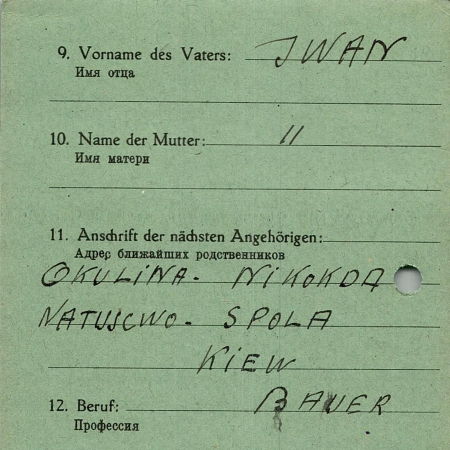 9. Vorname des Vaters: IWAN
Имя отца
10. Name der Mutter: "
Имя матери
11. Anschrift der nächsten Angehörigen:
Адрес ближайших родственников
OKULINA - NIKOKDA
NATUSCWO - SPOLA
KIEW
12. Beruf: BAUER
Профессия